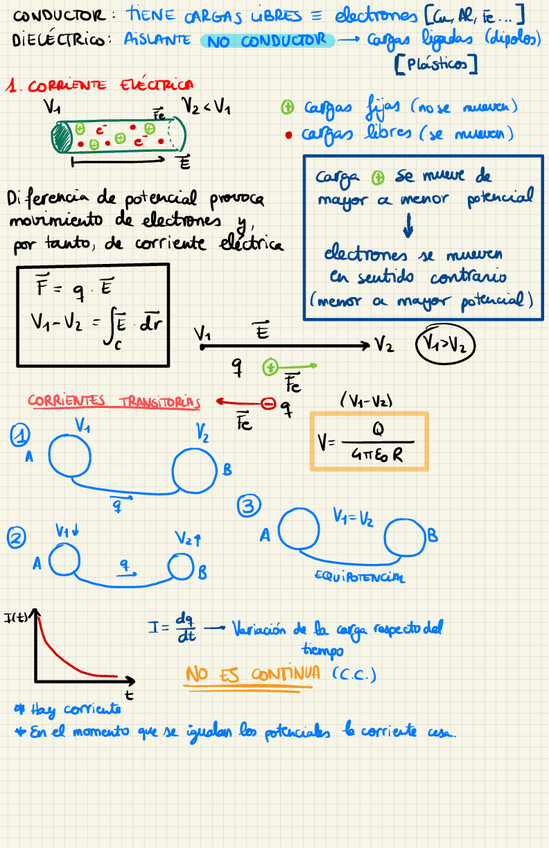 CONDUCTOR: TIENE CARGAS LIBRES ≡ electrones [Cu, Al, Fe...]
DIELÉCTRICO: AISLANTE NO CONDUCTOR → cargas ligadas (dipolos)
[Plásticos]
1. CORRIENTE ELÉCTRICA
V1 Fe V2 < V1
e- e-
E
⊕ cargas fijas (no se mueven)
• cargas libres (se mueven)
Diferencia de potencial provoca
movimiento de electrones y,
por tanto, de corriente eléctrica
carga ⊕ se mueve de
mayor a menor potencial
↓
electrones se mueven
en sentido contrario
(menor a mayor potencial)
F = q · E
V1 - V2 = ∫c E · dr
V1 E V2
V1 > V2
q ⊕ Fe
Fe ⊖ q
CORRIENTES TRANSITORIAS
(V1-V2)
V = Q / 4πε0 R
① V1 V2
A B
q
② V1↓ V2↑
A q B
③ V1 = V2
A B
EQUIPOTENCIAL
I(t)
t
I = dq/dt → Variación de la carga respecto del
tiempo
NO ES CONTINUA (C.C.)
* Hay corriente
* En el momento que se igualan los potenciales la corriente cesa.